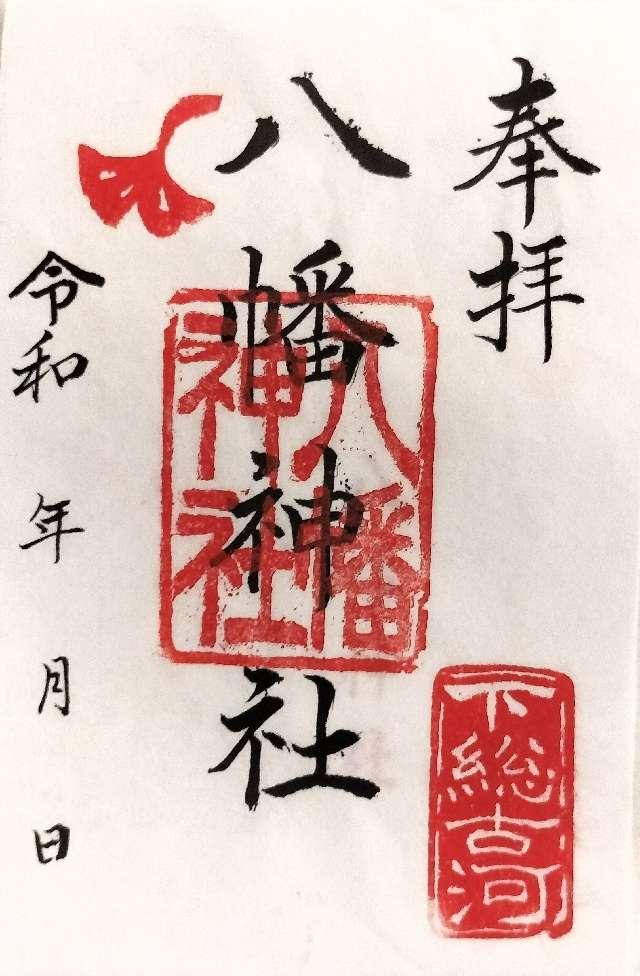 奉拝
八幡神社
八幡
神社
下総古河
令和 年 月 日